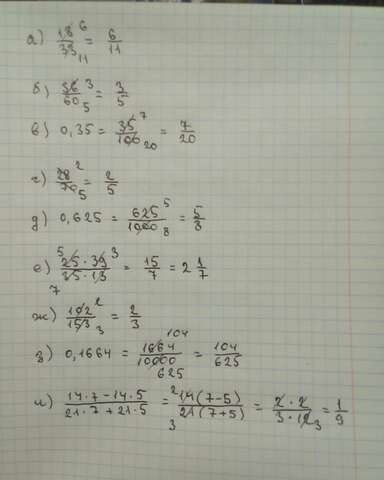 а) 18/33 6 11 = 6/11
б) 36/60 3 5 = 3/5
в) 0,35 = 35/100 7 20 = 7/20
г) 28/70 2 5 = 2/5
д) 0,625 = 625/1000 5 8 = 5/3
е) 5 25·39/35·13 3 7 = 15/7 = 2 1/7
ж) 102/153 2 3 = 2/3
з) 0,1664 = 1664/10000 104 625 = 104/625
и) 14·7-14·5/21·7+21·5 = 2 14(7-5)/21(7+5) 3 = 2·2/3·12 3 = 1/9